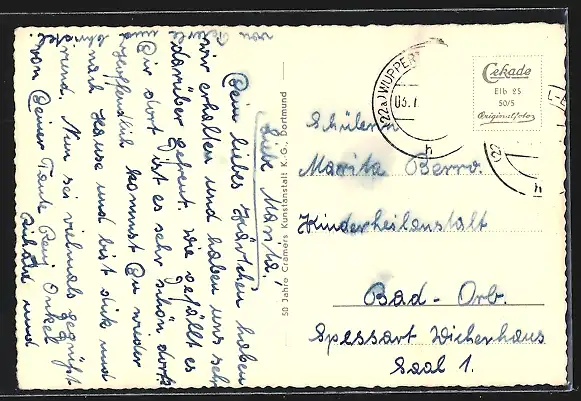 Liebe Marita!
Dein liebes Kärtchen haben
wir erhalten und haben uns sehr
darüber gefreut. Wie gefällt es
Dir dort ist es sehr schön dort
und hoffendlich kommst Du wieder
nach Hause und bist dick und
rund. Nun sei vielmals gegrüßt
von Deiner Tante Onkel
und
von
50 Jahre Cramers Kunstanstalt K.-G., Dortmund
(22a) WUPPER
03.7
h
Cekade
Elb 25
50/5
Originalfoto
(22
h
Schülerin
Marita Berro.
Kinderheilanstalt
Bad-Orb.
Spessart Wicherhaus
Saal 1.